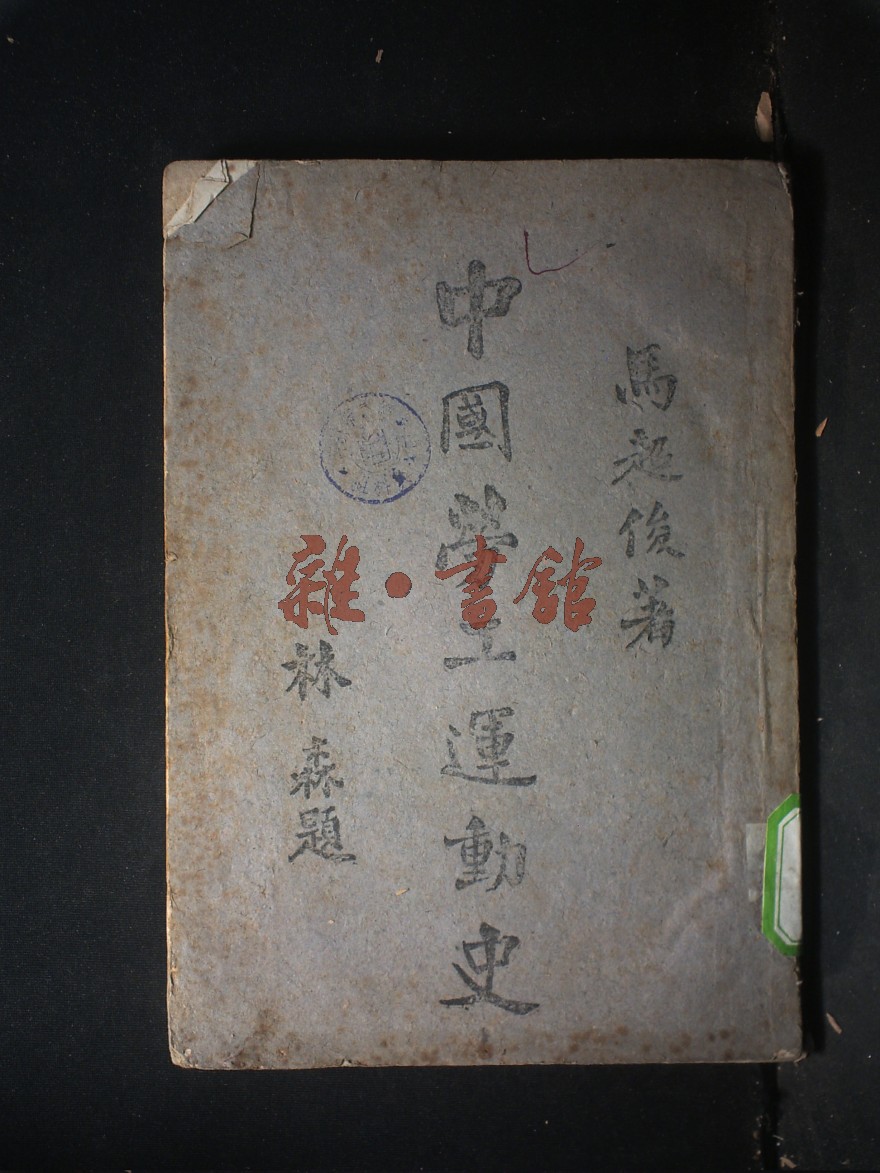 馬超俊著
中國勞工運動史
林森題
雜·書館